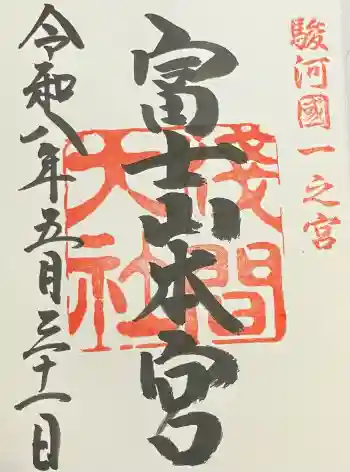 駿河國一之宮
富士山本宮
淺間大社
令和八年五月三十一日